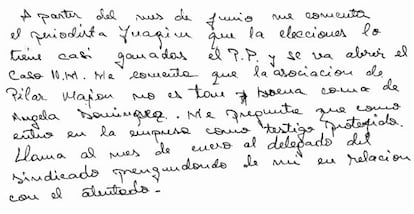 A partir del mes de Junio me comenta
el periodista Juaquin que la elecciones lo
tiene casi ganadas el P.P y se va abrir el
Caso 11.M. Me comenta que la asociacion de
Pilar Majon no es tan buena coma de
Angela Dominguez. Me pregunta que como
entro en la empresa como testigo protegido.
Llama al mes de enero al delegado del
sindicado preguntando de mi en relacion
con el atentado.